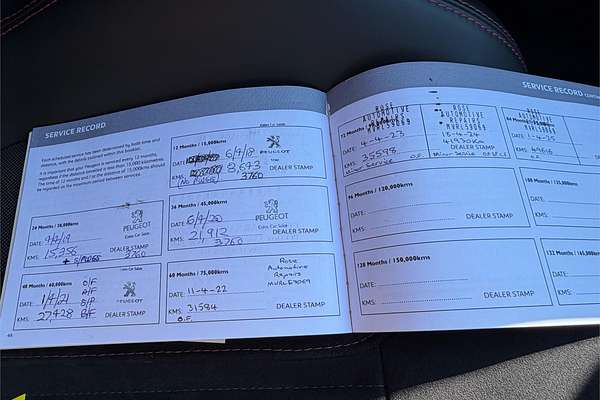 SERVICE RECORD
Each scheduled service has been determined by both time and
distance, with the details outlined within this booklet.
It is important that your Peugeot is serviced every 12 months,
regardless if the distance travelled is less than 15,000 kilometres.
The time of 12 months and / or the distance of 15,000kms should
be regarded as the maximum period between services.
12 Months / 15,000kms
DATE:
KMS: 8,643
3760
PEUGEOT
DEALER STAMP
24 Months / 30,000kms
DATE:
KMS: 15,258
3760
PEUGEOT
DEALER STAMP
36 Months / 45,000kms
DATE: 6/4/20
KMS: 21,912
3760
PEUGEOT
DEALER STAMP
48 Months / 60,000kms
DATE: 1/4/21
KMS: 27,428
O/F
A/F
PEUGEOT
DEALER STAMP
60 Months / 75,000kms
DATE: 11-4-22
KMS: 31584
O.F
Rose
Automotive
Repairs
MVRL59069
DEALER STAMP
SERVICE RECORD
72 Months
ROSE
AUTOMOTIVE
REPAIRS
MVRL59069
DATE: 4-4-23
KMS: 35598
Minor Service OF
ROSE
AUTOMOTIVE
REPAIRS
MVRL59069
15-4-24
DEALER STAMP
Minor Service
84 Months
ROSE
AUTOMOTIVE
REPAIRS
MVRL59069
DATE:
KMS:
96 Months / 120,000kms
DATE:
KMS:
DEALER STAMP
108 Months
DATE:
KMS:
120 Months / 150,000kms
DATE:
KMS:
DEALER STAMP
132 Months / 165,000
DATE:
KMS: